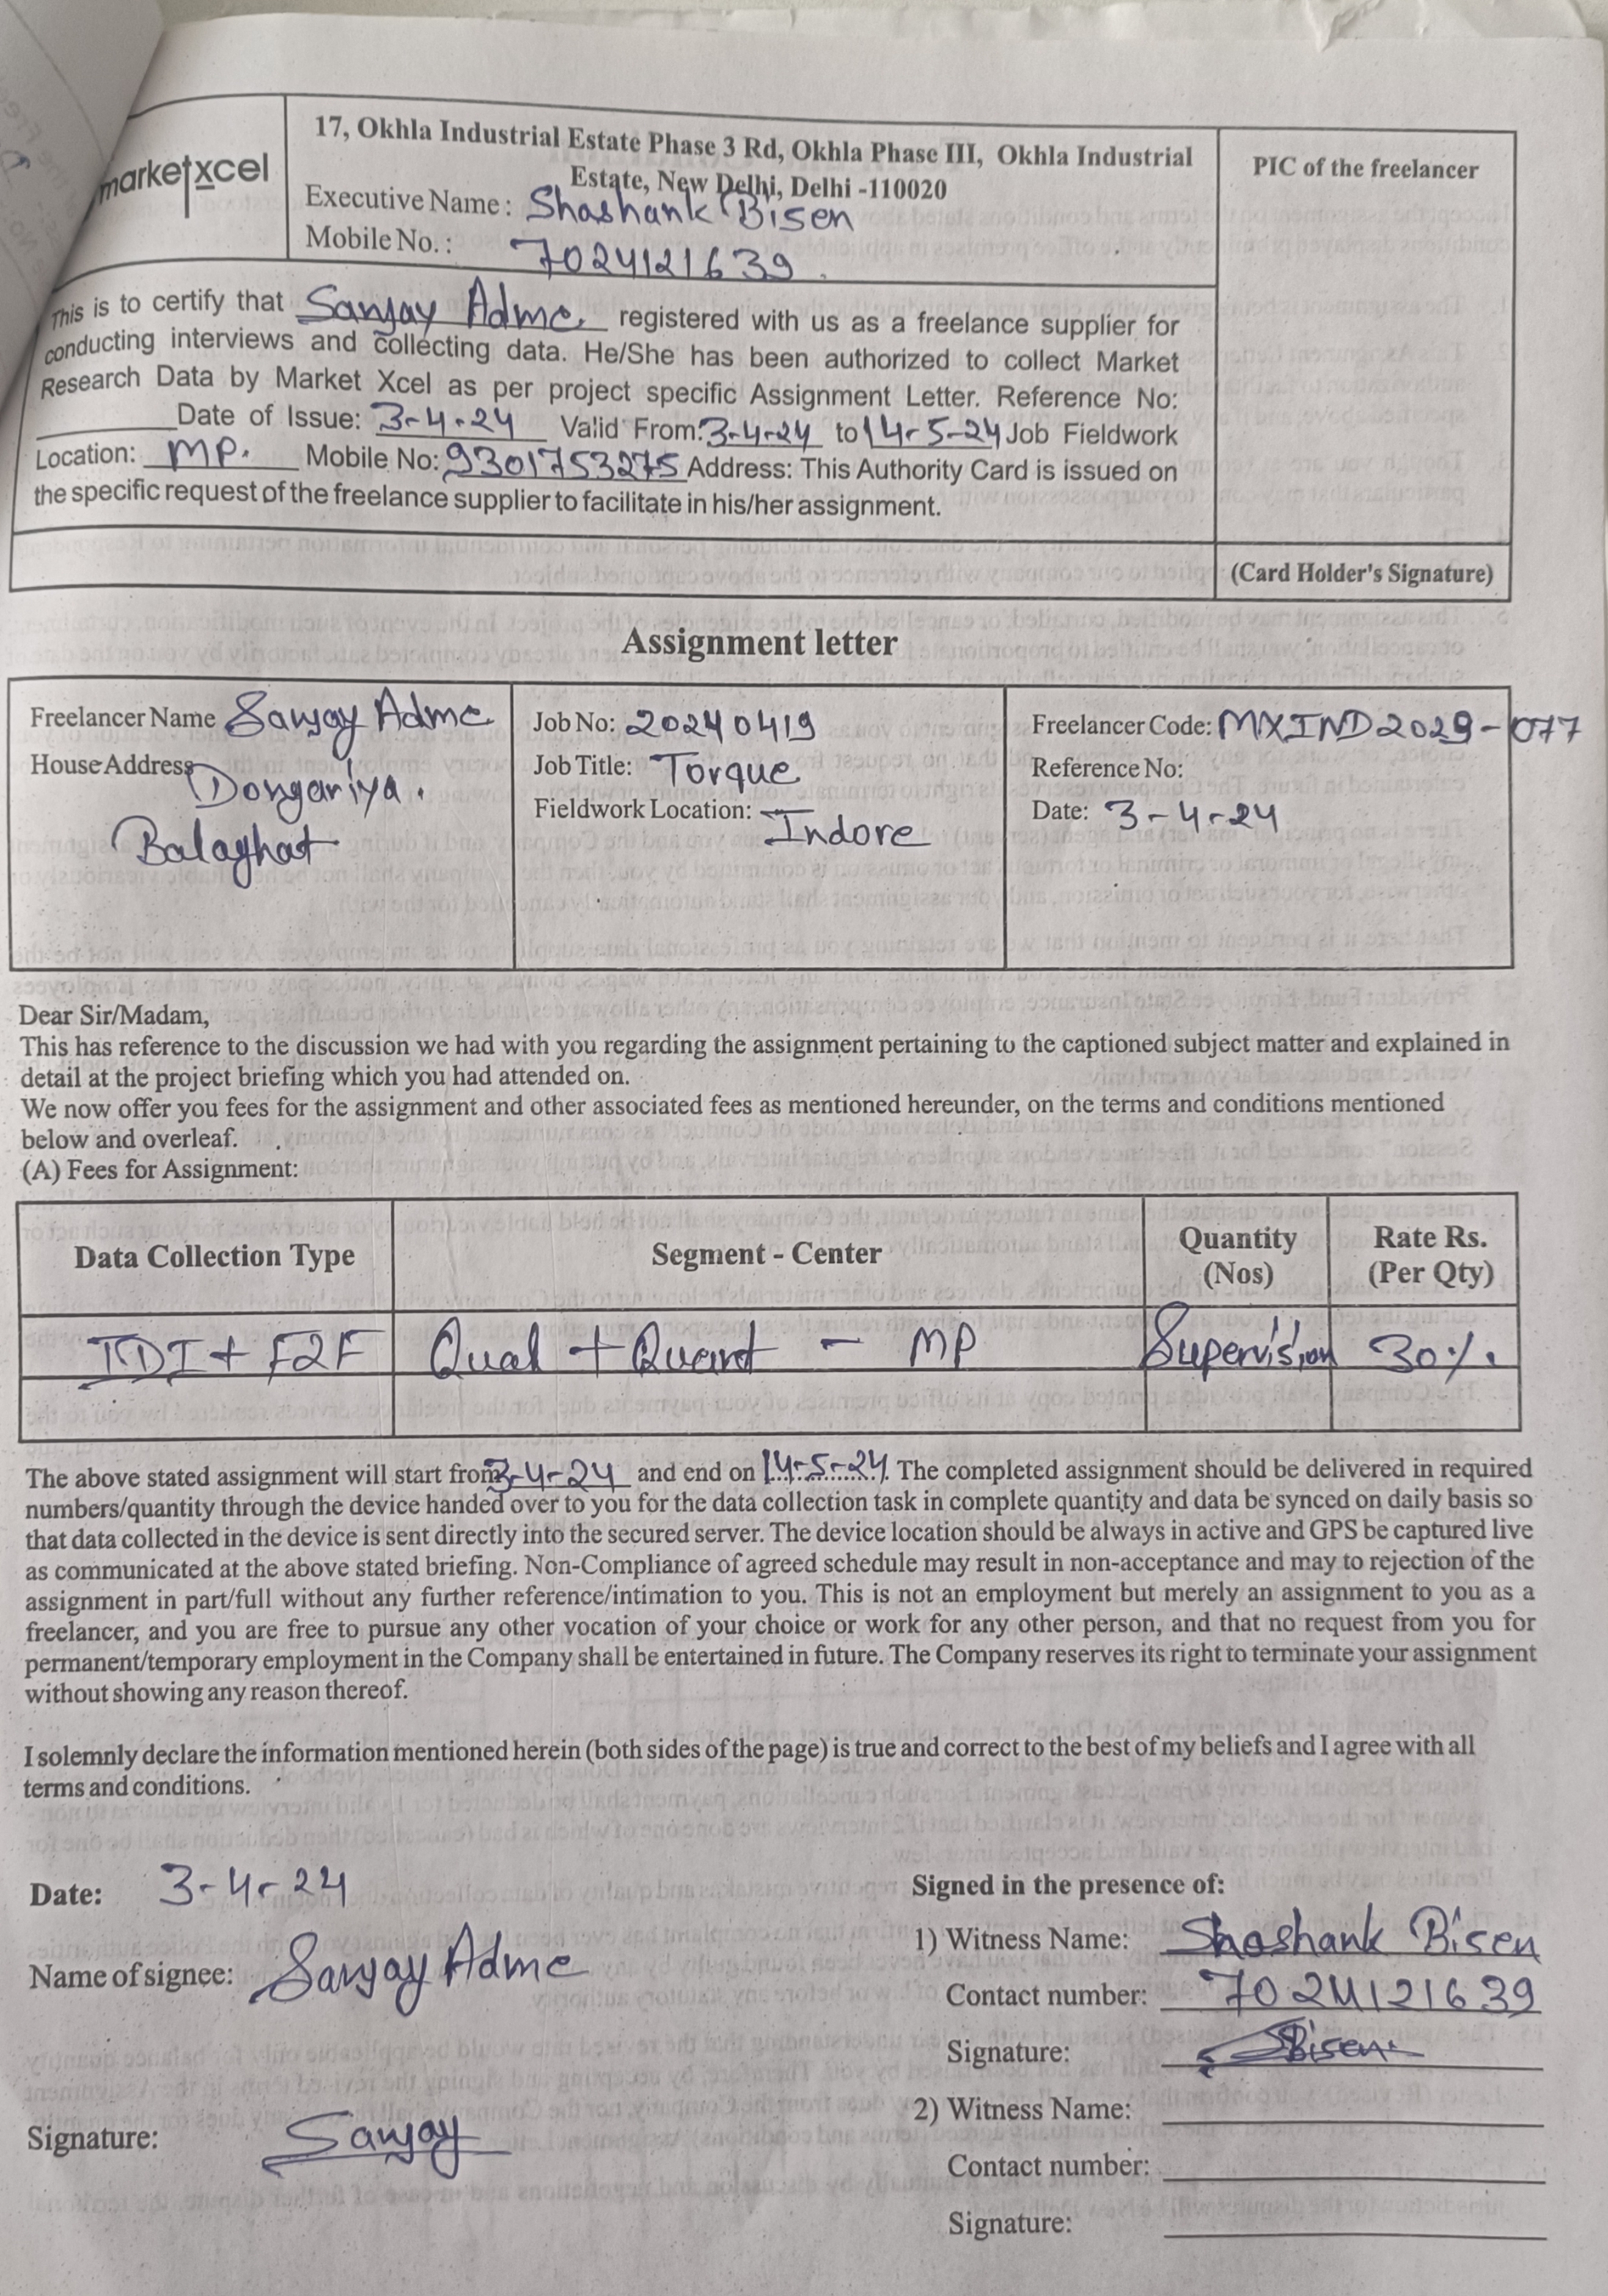 marketxcel
17, Okhla Industrial Estate Phase 3 Rd, Okhla Phase III, Okhla Industrial
Estate, New Delhi, Delhi -110020
Executive Name : Shashank Bisen
Mobile No. : 7024121639
PIC of the freelancer
This is to certify that Sanjay Adme registered with us as a freelance supplier for
conducting interviews and collecting data. He/She has been authorized to collect Market
Research Data by Market Xcel as per project specific Assignment Letter. Reference No:
Date of Issue: 3-4-24 Valid From: 3-4-24 to 14-5-24 Job Fieldwork
Location: MP. Mobile No: 9301753275 Address: This Authority Card is issued on
the specific request of the freelance supplier to facilitate in his/her assignment.
(Card Holder's Signature)
Assignment letter
Freelancer Name Sanjay Adme
House Address Dongariya.
Balaghat
Job No: 20240419
Job Title: Torque
Fieldwork Location: Indore
Freelancer Code: MXIND2029-077
Reference No:
Date: 3-4-24
Dear Sir/Madam,
This has reference to the discussion we had with you regarding the assignment pertaining to the captioned subject matter and explained in
detail at the project briefing which you had attended on.
We now offer you fees for the assignment and other associated fees as mentioned hereunder, on the terms and conditions mentioned
below and overleaf.
(A) Fees for Assignment:
Data Collection Type Segment - Center Quantity (Nos) Rate Rs. (Per Qty)
IDI + F2F Qual + Quant - MP Supervision 30%.
The above stated assignment will start from 3-4-24 and end on 14-5-24. The completed assignment should be delivered in required
numbers/quantity through the device handed over to you for the data collection task in complete quantity and data be synced on daily basis so
that data collected in the device is sent directly into the secured server. The device location should be always in active and GPS be captured live
as communicated at the above stated briefing. Non-Compliance of agreed schedule may result in non-acceptance and may to rejection of the
assignment in part/full without any further reference/intimation to you. This is not an employment but merely an assignment to you as a
freelancer, and you are free to pursue any other vocation of your choice or work for any other person, and that no request from you for
permanent/temporary employment in the Company shall be entertained in future. The Company reserves its right to terminate your assignment
without showing any reason thereof.
I solemnly declare the information mentioned herein (both sides of the page) is true and correct to the best of my beliefs and I agree with all
terms and conditions.
Date: 3-4-24
Name of signee: Sanjay Adme
Signature: Sanjay
Signed in the presence of:
1) Witness Name: Shashank Bisen
Contact number: 7024121639
Signature: SBisen
2) Witness Name:
Contact number:
Signature: